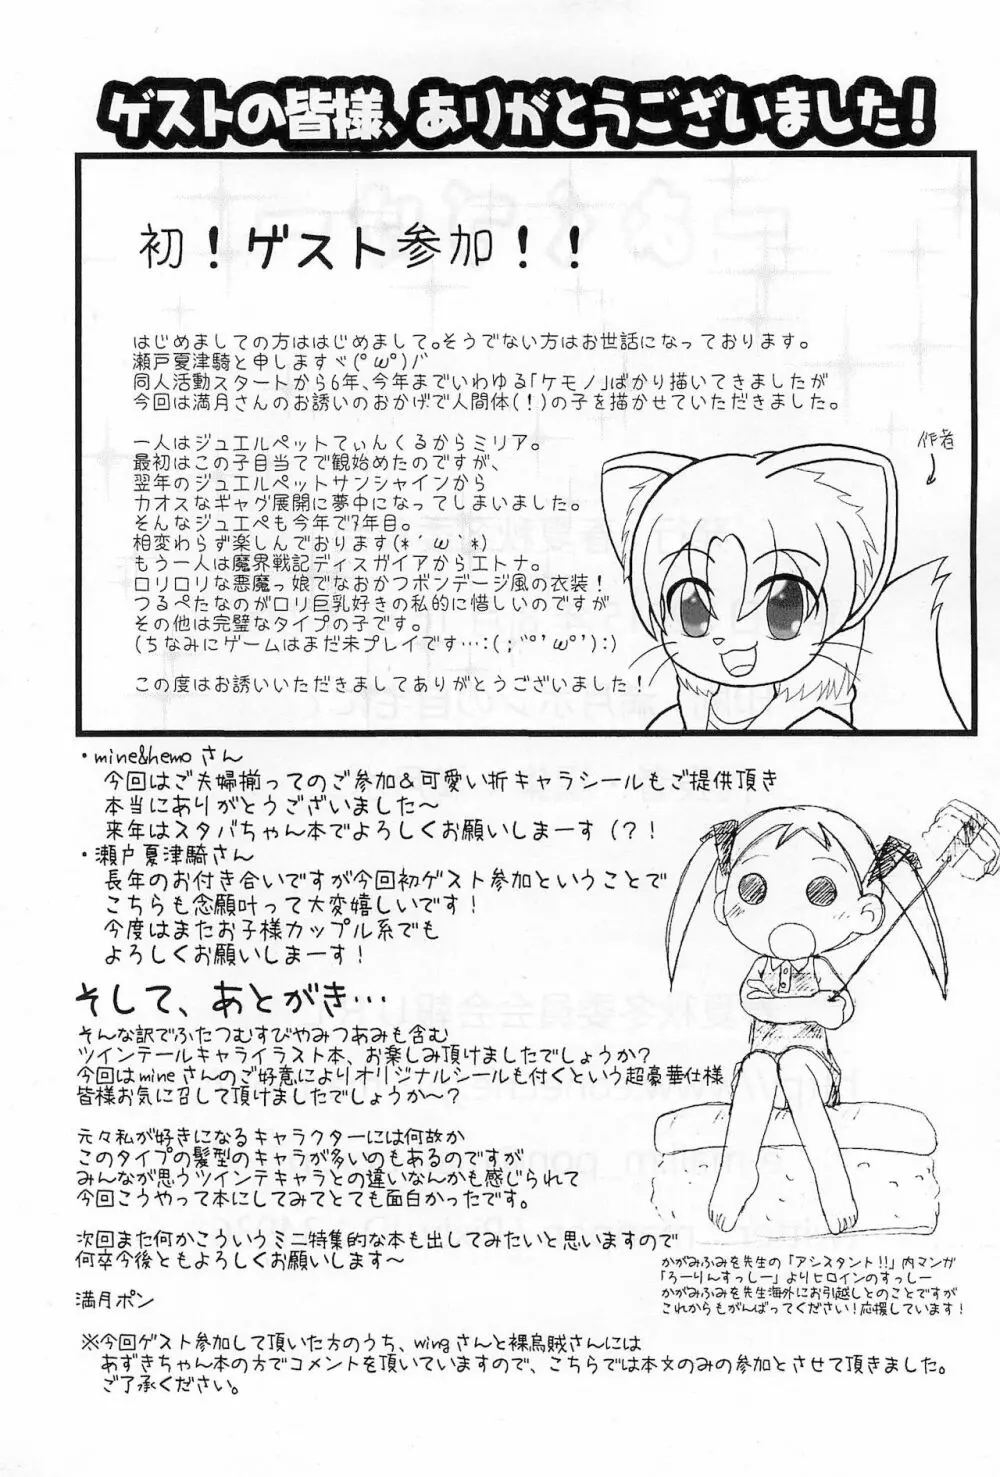 ゲストの皆様、ありがとうございました!
初!ゲスト参加!!
はじめましての方ははじめまして。そうでない方はお世話になっております。
瀬戸夏津騎と申しますヾ(ﾟωﾟ)ﾉﾞ
同人活動スタートから6年、今年までいわゆる「ケモノ」ばかり描いてきましたが
今回は満月さんのお誘いのおかげで人間体(!)の子を描かせていただきました。
一人はジュエルペットてぃんくるからミリア。
最初はこの子目当てで観始めたのですが、
翌年のジュエルペットサンシャインから
カオスなギャグ展開に夢中になってしまいました。
そんなジュエペも今年で7年目。
相変わらず楽しんでおります(*´ω`*)
もう一人は魔界戦記ディスガイアからエトナ。
ロリロリな悪魔っ娘でなおかつボンデージ風の衣装!
つるぺたなのがロリ巨乳好きの私的に惜しいのですが
その他は完璧なタイプの子です。
(ちなみにゲームはまだ未プレイです…:(;ﾞﾟ'ωﾟ'):)
この度はお誘いいただきましてありがとうございました!
作者
・mine&hemoさん
今回はご夫婦揃ってのご参加&可愛い折キャラシールもご提供頂き
本当にありがとうございました〜
来年はスタバちゃん本でよろしくお願いしまーす(?!
・瀬戸夏津騎さん
長年のお付き合いですが今回初ゲスト参加ということで
こちらも念願叶って大変嬉しいです!
今度はまたお子様カップル系でも
よろしくお願いしまーす!
そして、あとがき…
そんな訳でふたつむすびやみつあみも含む
ツインテールキャライラスト本、お楽しみ頂けましたでしょうか?
今回はmineさんのご好意によりオリジナルシールも付くという超豪華仕様
皆様お気に召して頂けましたでしょうか〜?
元々私が好きになるキャラクターには何故か
このタイプの髪型のキャラが多いのもあるのですが
みんなが思うツインテキャラとの違いなんかも感じられて
今回こうやって本にしてみてとても面白かったです。
次回また何かこういうミニ特集的な本も出してみたいと思いますので
何卒今後ともよろしくお願いします〜
満月ポン
かがみふみを先生の「アシスタント!!」内マンガ
「ろーりんすっしー」よりヒロインのすっしー
かがみふみを先生海外にお引越しとのことですが
これからもがんばってください!応援しています!
※今回ゲスト参加して頂いた方のうち、wingさんと裸烏賊さんには
あずきちゃん本の方でコメントを頂いていますので、こちらでは本文のみの参加とさせて頂きました。
ご了承ください。